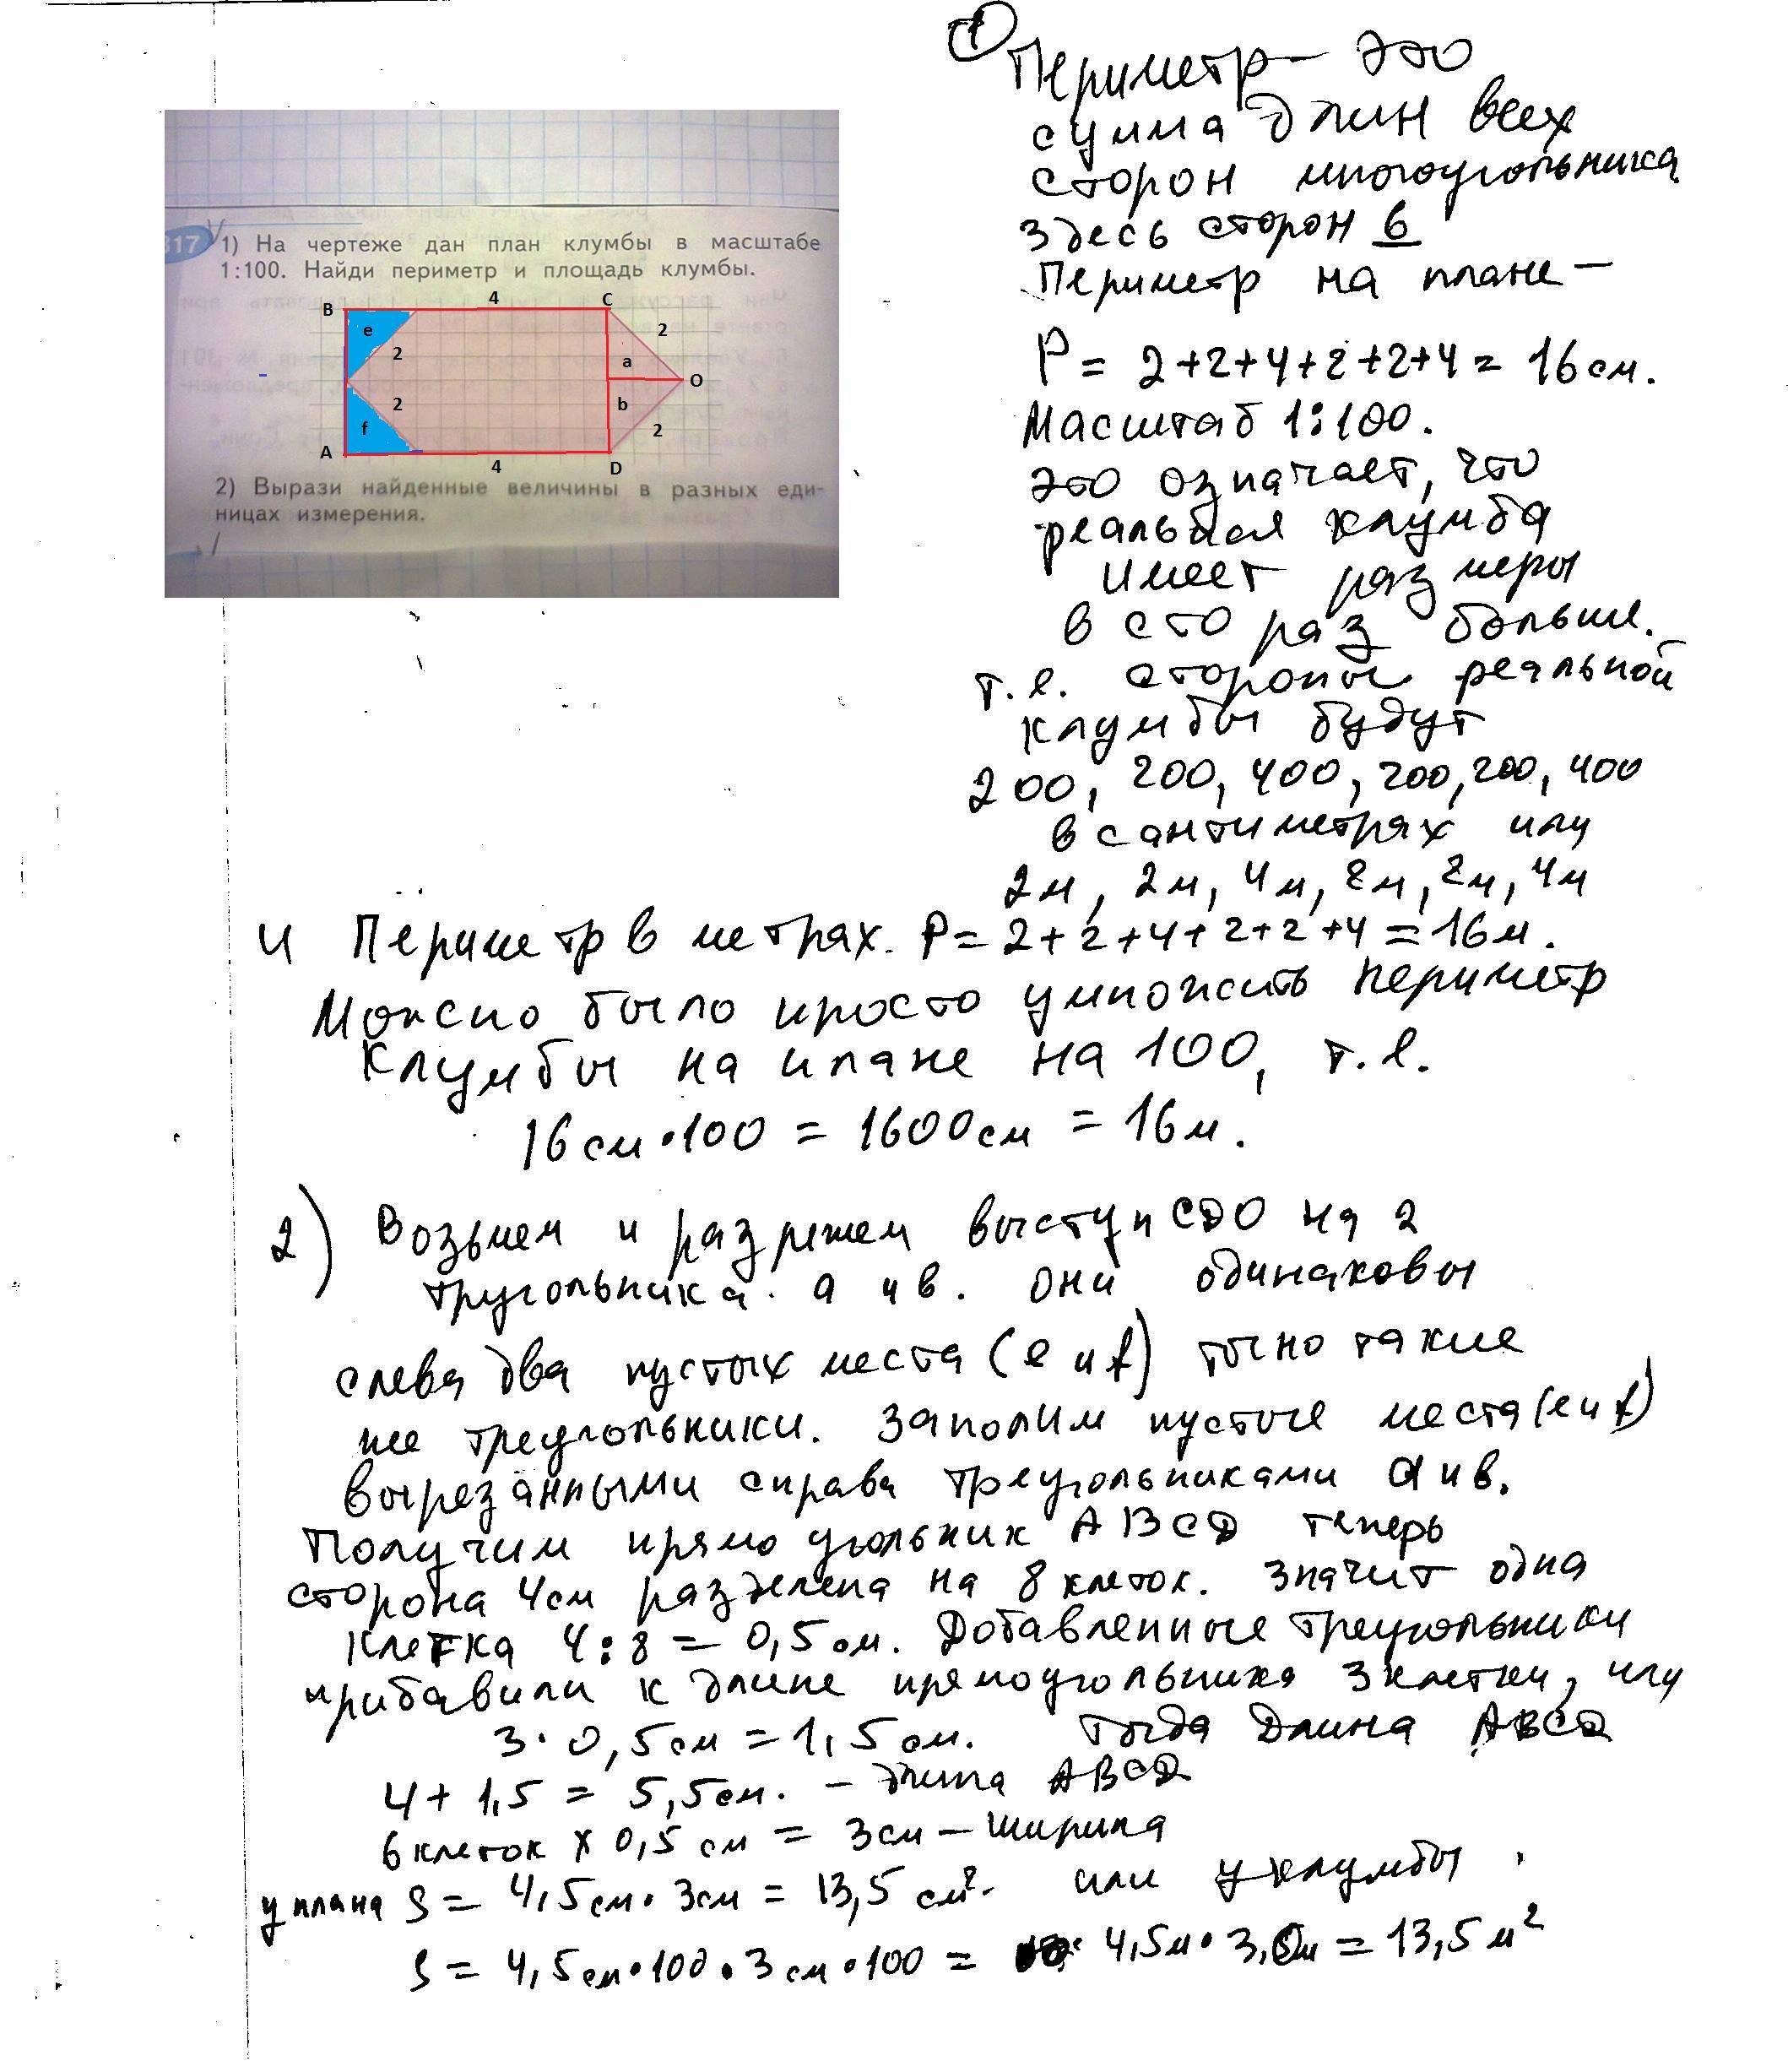 317 1) На чертеже дан план клумбы в масштабе
1:100. Найди периметр и площадь клумбы.
B 4 C
e 2 2
a O
2 b
f 2
A 4 D
2) Вырази найденные величины в разных еди-
ницах измерения.
1 Периметр – это
сумма длин всех
сторон многоугольника
здесь сторон 6
Периметр на плане –
P = 2+2+4+2+2+4 = 16 см.
Масштаб 1:100.
это означает, что
реальная клумба
имеет размеры
в сто раз больше.
т.е. стороны реальной
клумбы будут
200, 200, 400, 200, 200, 400
в сантиметрах или
2м, 2м, 4м, 2м, 2м, 4м
и Периметр в метрах. P = 2+2+4+2+2+4 = 16м.
Можно было просто умножить периметр
клумбы на плане на 100, т.е.
16 см • 100 = 1600 см = 16 м.
2) Возьмем и разрежем выступ CDO на 2
тругольника. a и в. они одинаковы
слева два пустых места (e и f) точно такие
же треугольники. Заполим пустые места (e и f)
вырезанными справа треугольниками a и в.
Получим прямоугольник ABCD теперь
сторона 4см разделена на 8 клеток. Значит одна
клетка 4:8 = 0,5 см. Добавленные треугольники
прибавили к длине прямоугольника 3 клетки, или
3 • 0,5 см = 1,5 см. Тогда Длина ABCD
4 + 1,5 = 5,5 см. – длина ABCD
6 клеток x 0,5 см = 3 см – ширина
у плана S = 4,5 см • 3 см = 13,5 см². или у клумбы
S = 4,5 см • 100 • 3 см • 100 = 4,5 м • 3,0м = 13,5 м²